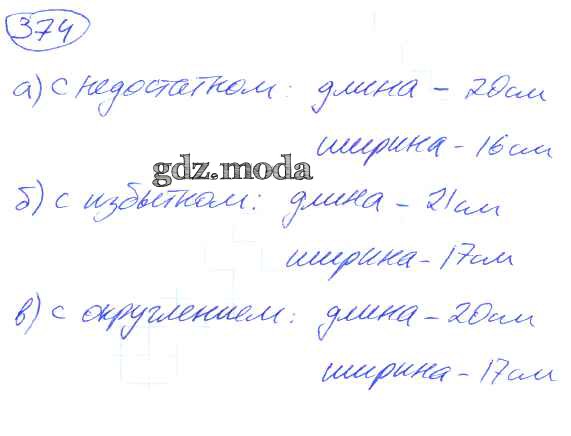 374
а) с недостатком: длина - 20см
ширина - 16см
gdz.moda
б) с избытком: длина - 21см
ширина - 17см
в) с округлением: длина - 20см
ширина - 17см